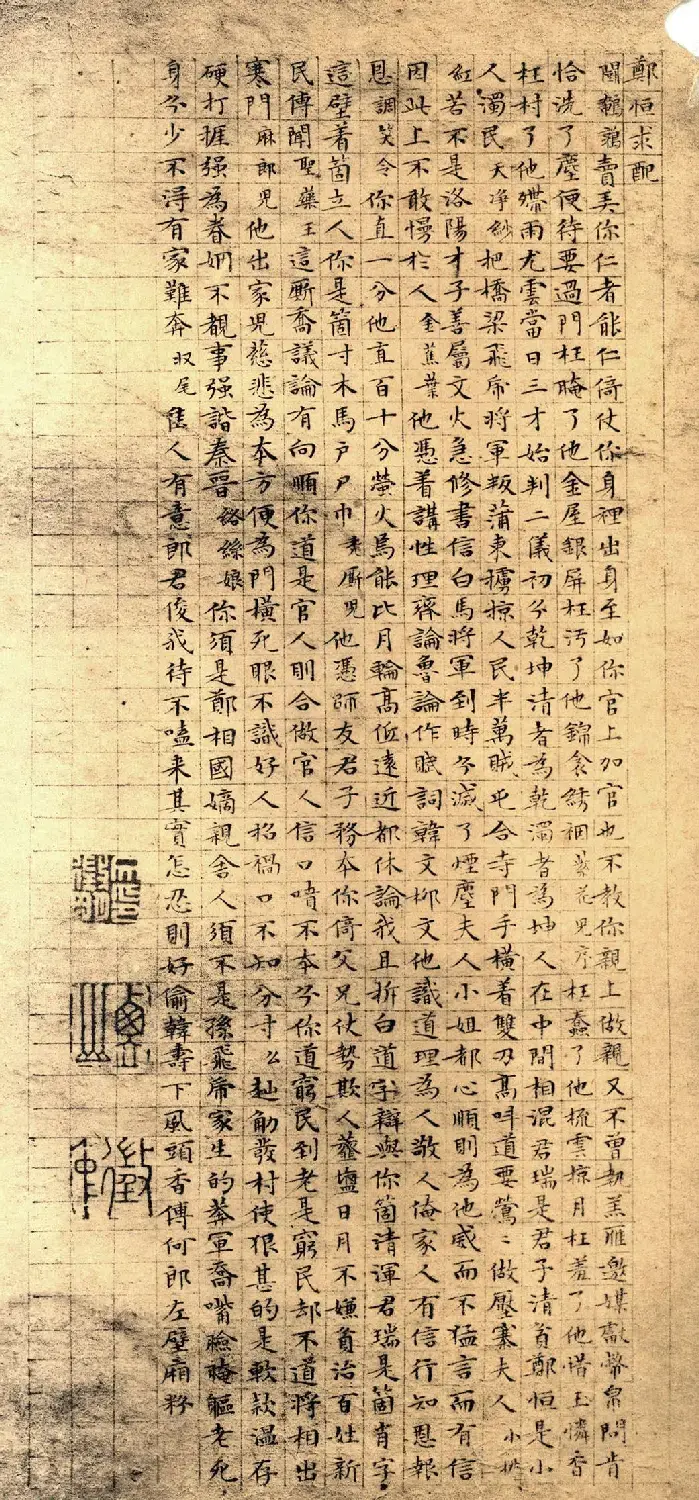 鄭恒求配
鬪鵪鶉賣美你仁者能仁倚仗你身裡出身至如你官上加官也不教你親上做親又不曾執羔雁邀媒獻幣帛問肯
恰洗了塵便待要過門枉腌了他金屋銀屏枉汚了他錦衾綉裀紫花兒序枉蠢了他梳雲掠月枉羞了他惜玉憐香
枉村了他殢雨尤雲當日三才始判二儀初分乾坤清者為乾濁者為坤人在中間相混君瑞是君子清首鄭恒是小
人濁民天净紗把橋梁飛虎將軍叛蒲東擄掠人民半萬賊屯合寺門手橫着雙刃高呌道要鶯〻做壓寨夫人小桃
紅若不是洛陽才子善屬文火急修書信白馬將軍到時分滅了煙塵夫人小姐都心順則為他威而不猛言而有信
因此上不敢慢於人金蕉葉他憑着講性理齊論魯論作賦詞韓文柳文他識道理為人敬人俺家人有信行知恩報
恩調笑令你直一分他直百十分螢火焉能比月輪高低遠近都休論我且拆白道字辯與你箇清渾君瑞是箇肖字
這壁着箇立人你是箇寸木馬戶尸巾禿厮兒他憑師友君子務本你倚父兄仗勢欺人虀鹽日月不嫌貧治百姓新
民傳聞聖藥王這厮喬議論有向順你道是官人則合做官人信口噴不本分你道窮民到老是窮民却不道將相出
寒門麻郎兒他出家兒慈悲為本方便為門橫死眼不識好人招禍口不知分寸么趂觔發村使狠甚的是軟欵溫存
硬打捱强為眷姻不覩事强諧秦晉絡絲娘你須是鄭相國嫡親舍人須不是孫飛虎家生的莽軍喬嘴臉腌軀老死
身分少不得有家難奔收尾佳人有意郎君俊我待不嗑来其實怎忍則好偷韓壽下風頭香傅何郎左壁廂粉